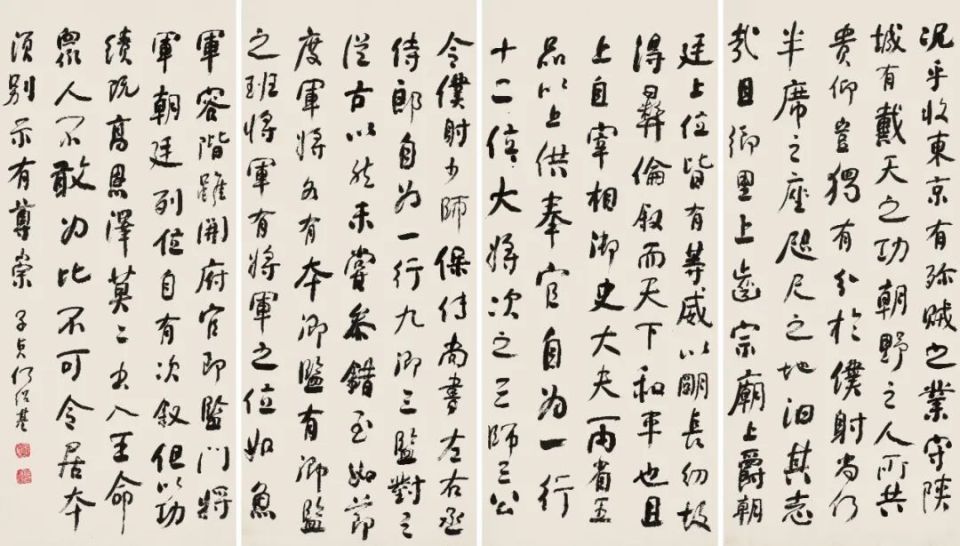 況乎收東京有殄賊之業守陝
城有戴天之功朝野之人所共
貴仰豈獨有分於僕射尚仍
半席之座咫尺之地汩其志
哉且鄉里上齒宗廟上爵朝
廷上位皆有等威以明長幼故
得彝倫叙而天下和平也且
上自宰相御史大夫兩省五
品以上供奉官自為一行
十二位大將次之三師三公
令僕射少師保傅尚書左右丞
侍郎自為一行九卿三監對之
從古以然未嘗參錯至如節
度軍將各有本卿監有卿監
之班將軍有將軍之位如魚
軍容階雖開府官即監門將
軍朝廷列位自有次叙但以功
績既高恩澤莫二出入王命
眾人不敢為比不可令居本
須別示有尊崇 子貞何紹基